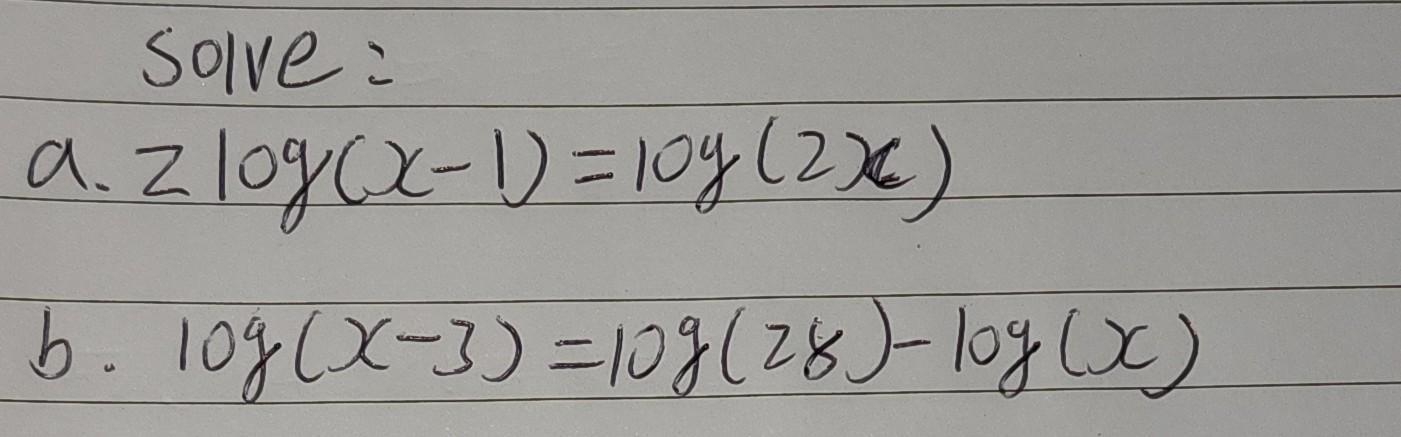 solve:
a. 2 log(x-1)=log(2x)
b. log(x-3)=log(28)-log(x)